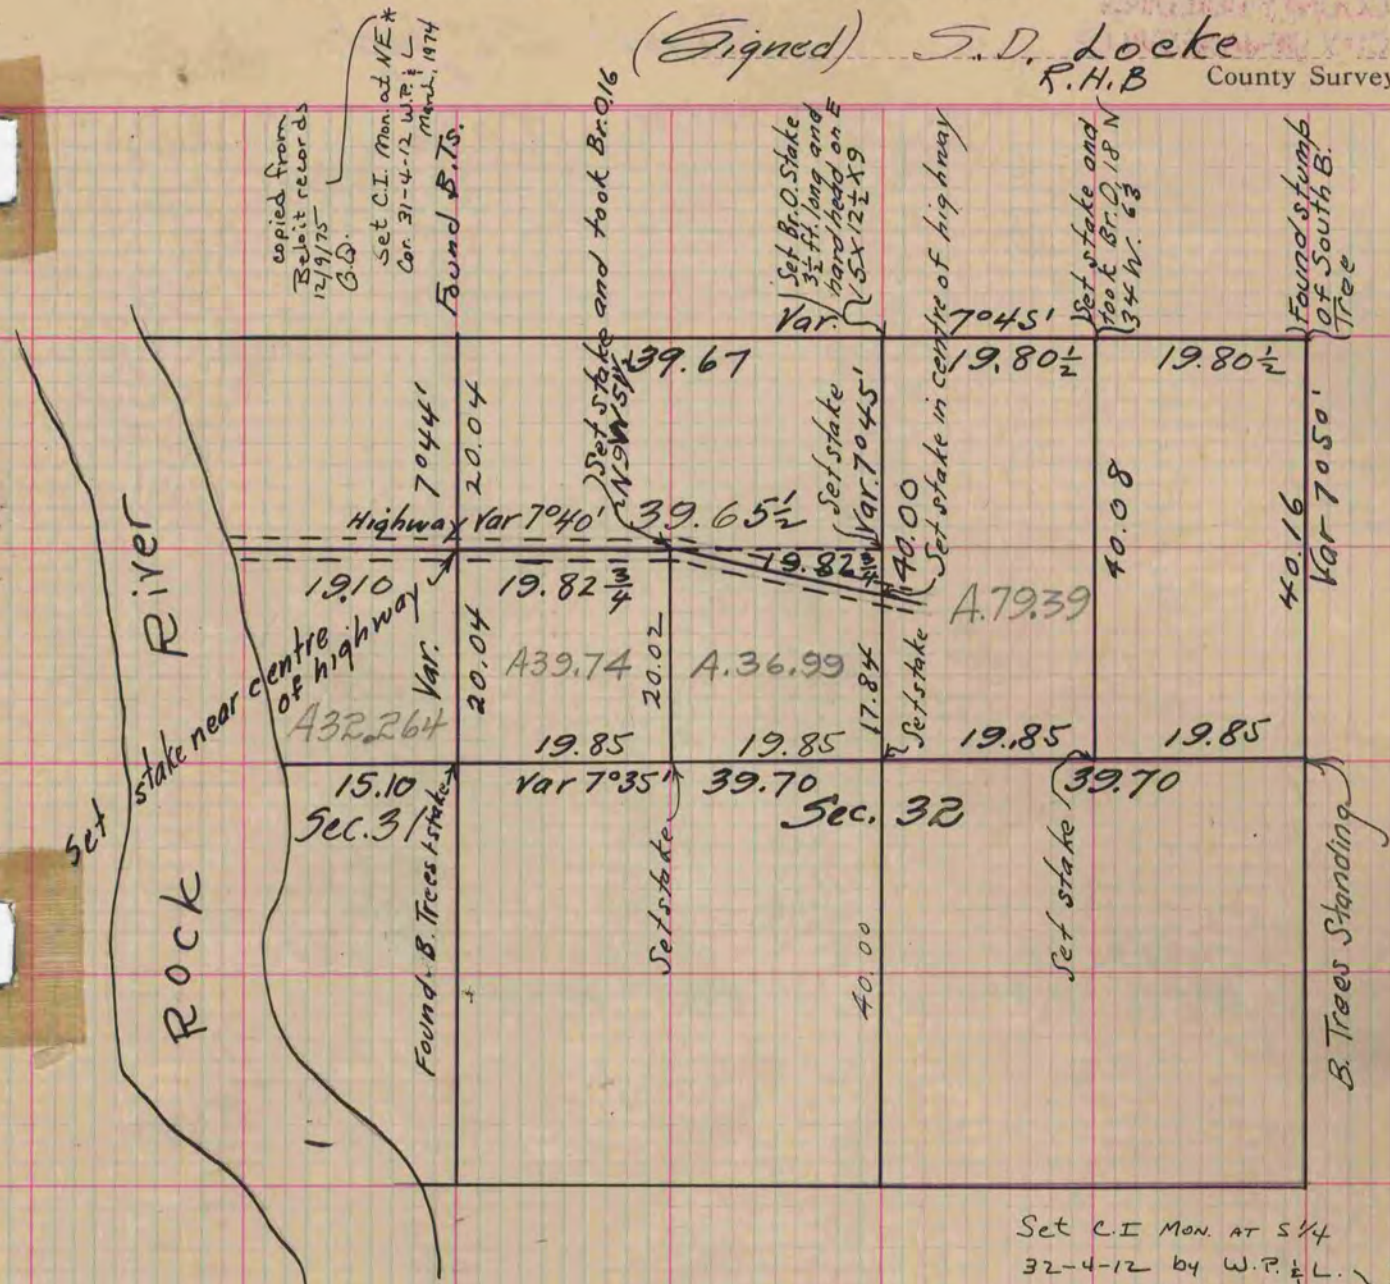 (Signed) S.D. Locke
R.H.B County Survey
copied from
Beloit records
12/9/75
Set C.I. Mon. at NE *
Cor. 31-4-12 W.P. & L
March, 1974
Found B.Ts.
Set stake and took Br.O.16
N9W51½
Set Br.O. Stake
3½ ft. long and
hard head on E
15x12½x9
Var.
Set stake in centre of highway
7°45'
Set stake and
took Br.O. 18 N
34 W. 63
Found stump
of South B.
Tree
39.67
19.80½
19.80½
7°44'
20.04
Set stake
Var. 7°45'
40.00
40.08
40.16
Var 7°50'
Highway Var 7°40'
39.65½
19.10
19.82¾
19.82¾
A.79.39
Set stake near centre
of highway
Var.
20.04
A39.74
20.02
A.36.99
17.84
Set stake
A32.264
19.85
19.85
19.85
19.85
15.10
Var 7°35'
39.70
39.70
Sec. 31
Sec. 32
Found B. Trees & stake
Set stake
40.00
Set stake
B. Trees Standing
Rock River
Set C.I MON. AT S 1/4
32-4-12 by W.P. & L.